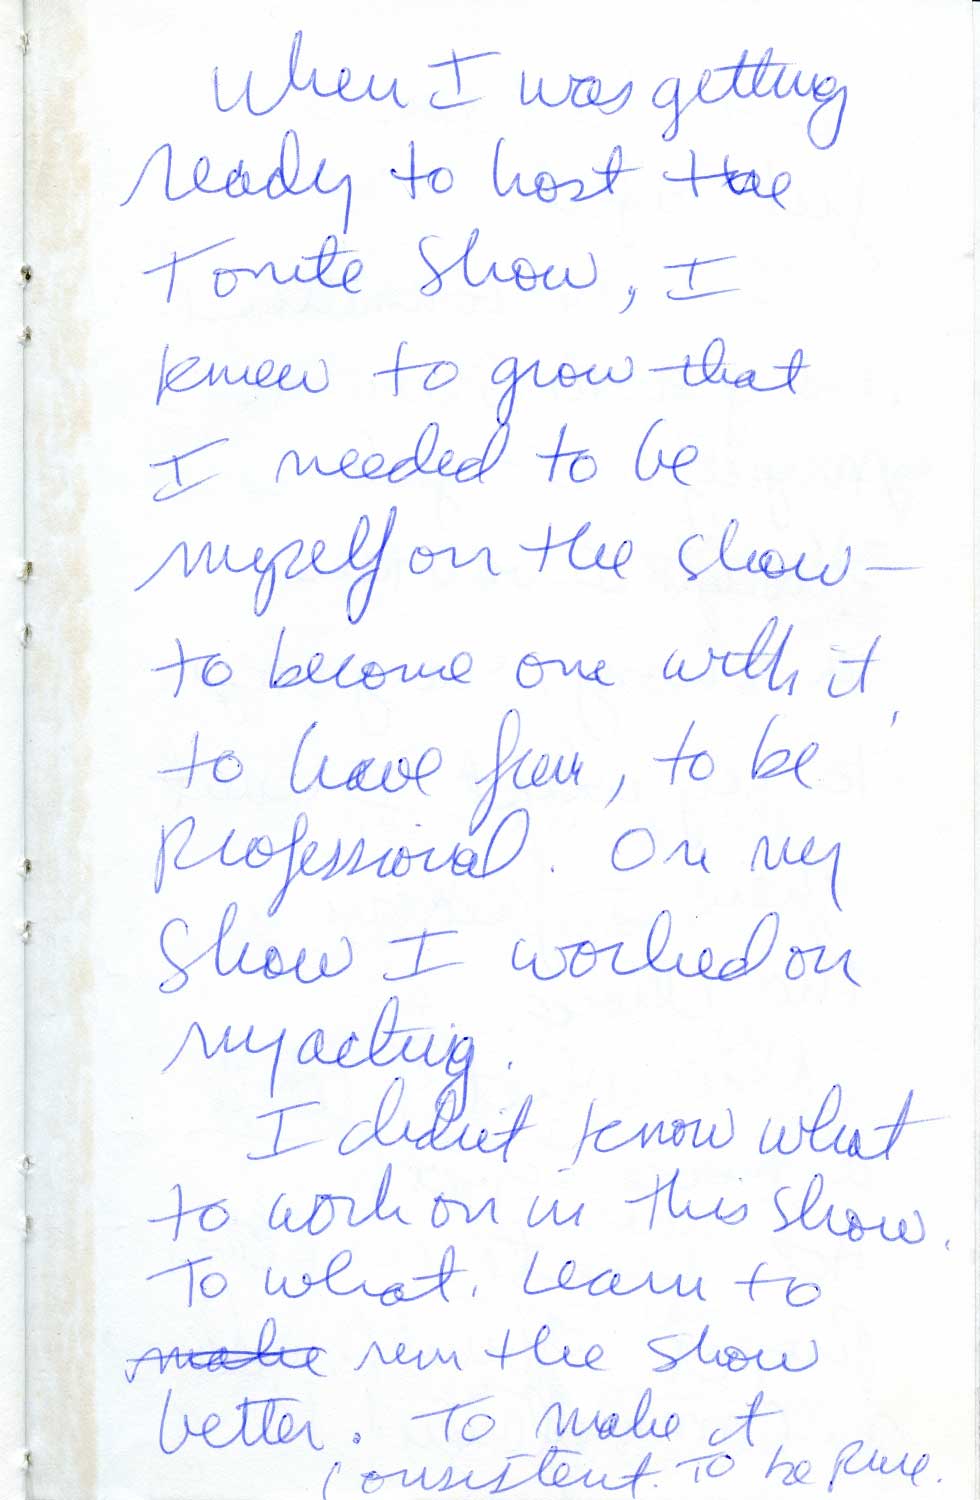 When I was getting
ready to host the
Tonite Show, I
knew to grow that
I needed to be
myself on the show –
to become one with it,
to have fun, to be
Professional. On my
Show I worked on
my acting.
I didn't know what
to work on in this show.
To what. Learn to
make run the show
better. To make it
consistent. To be Pure.